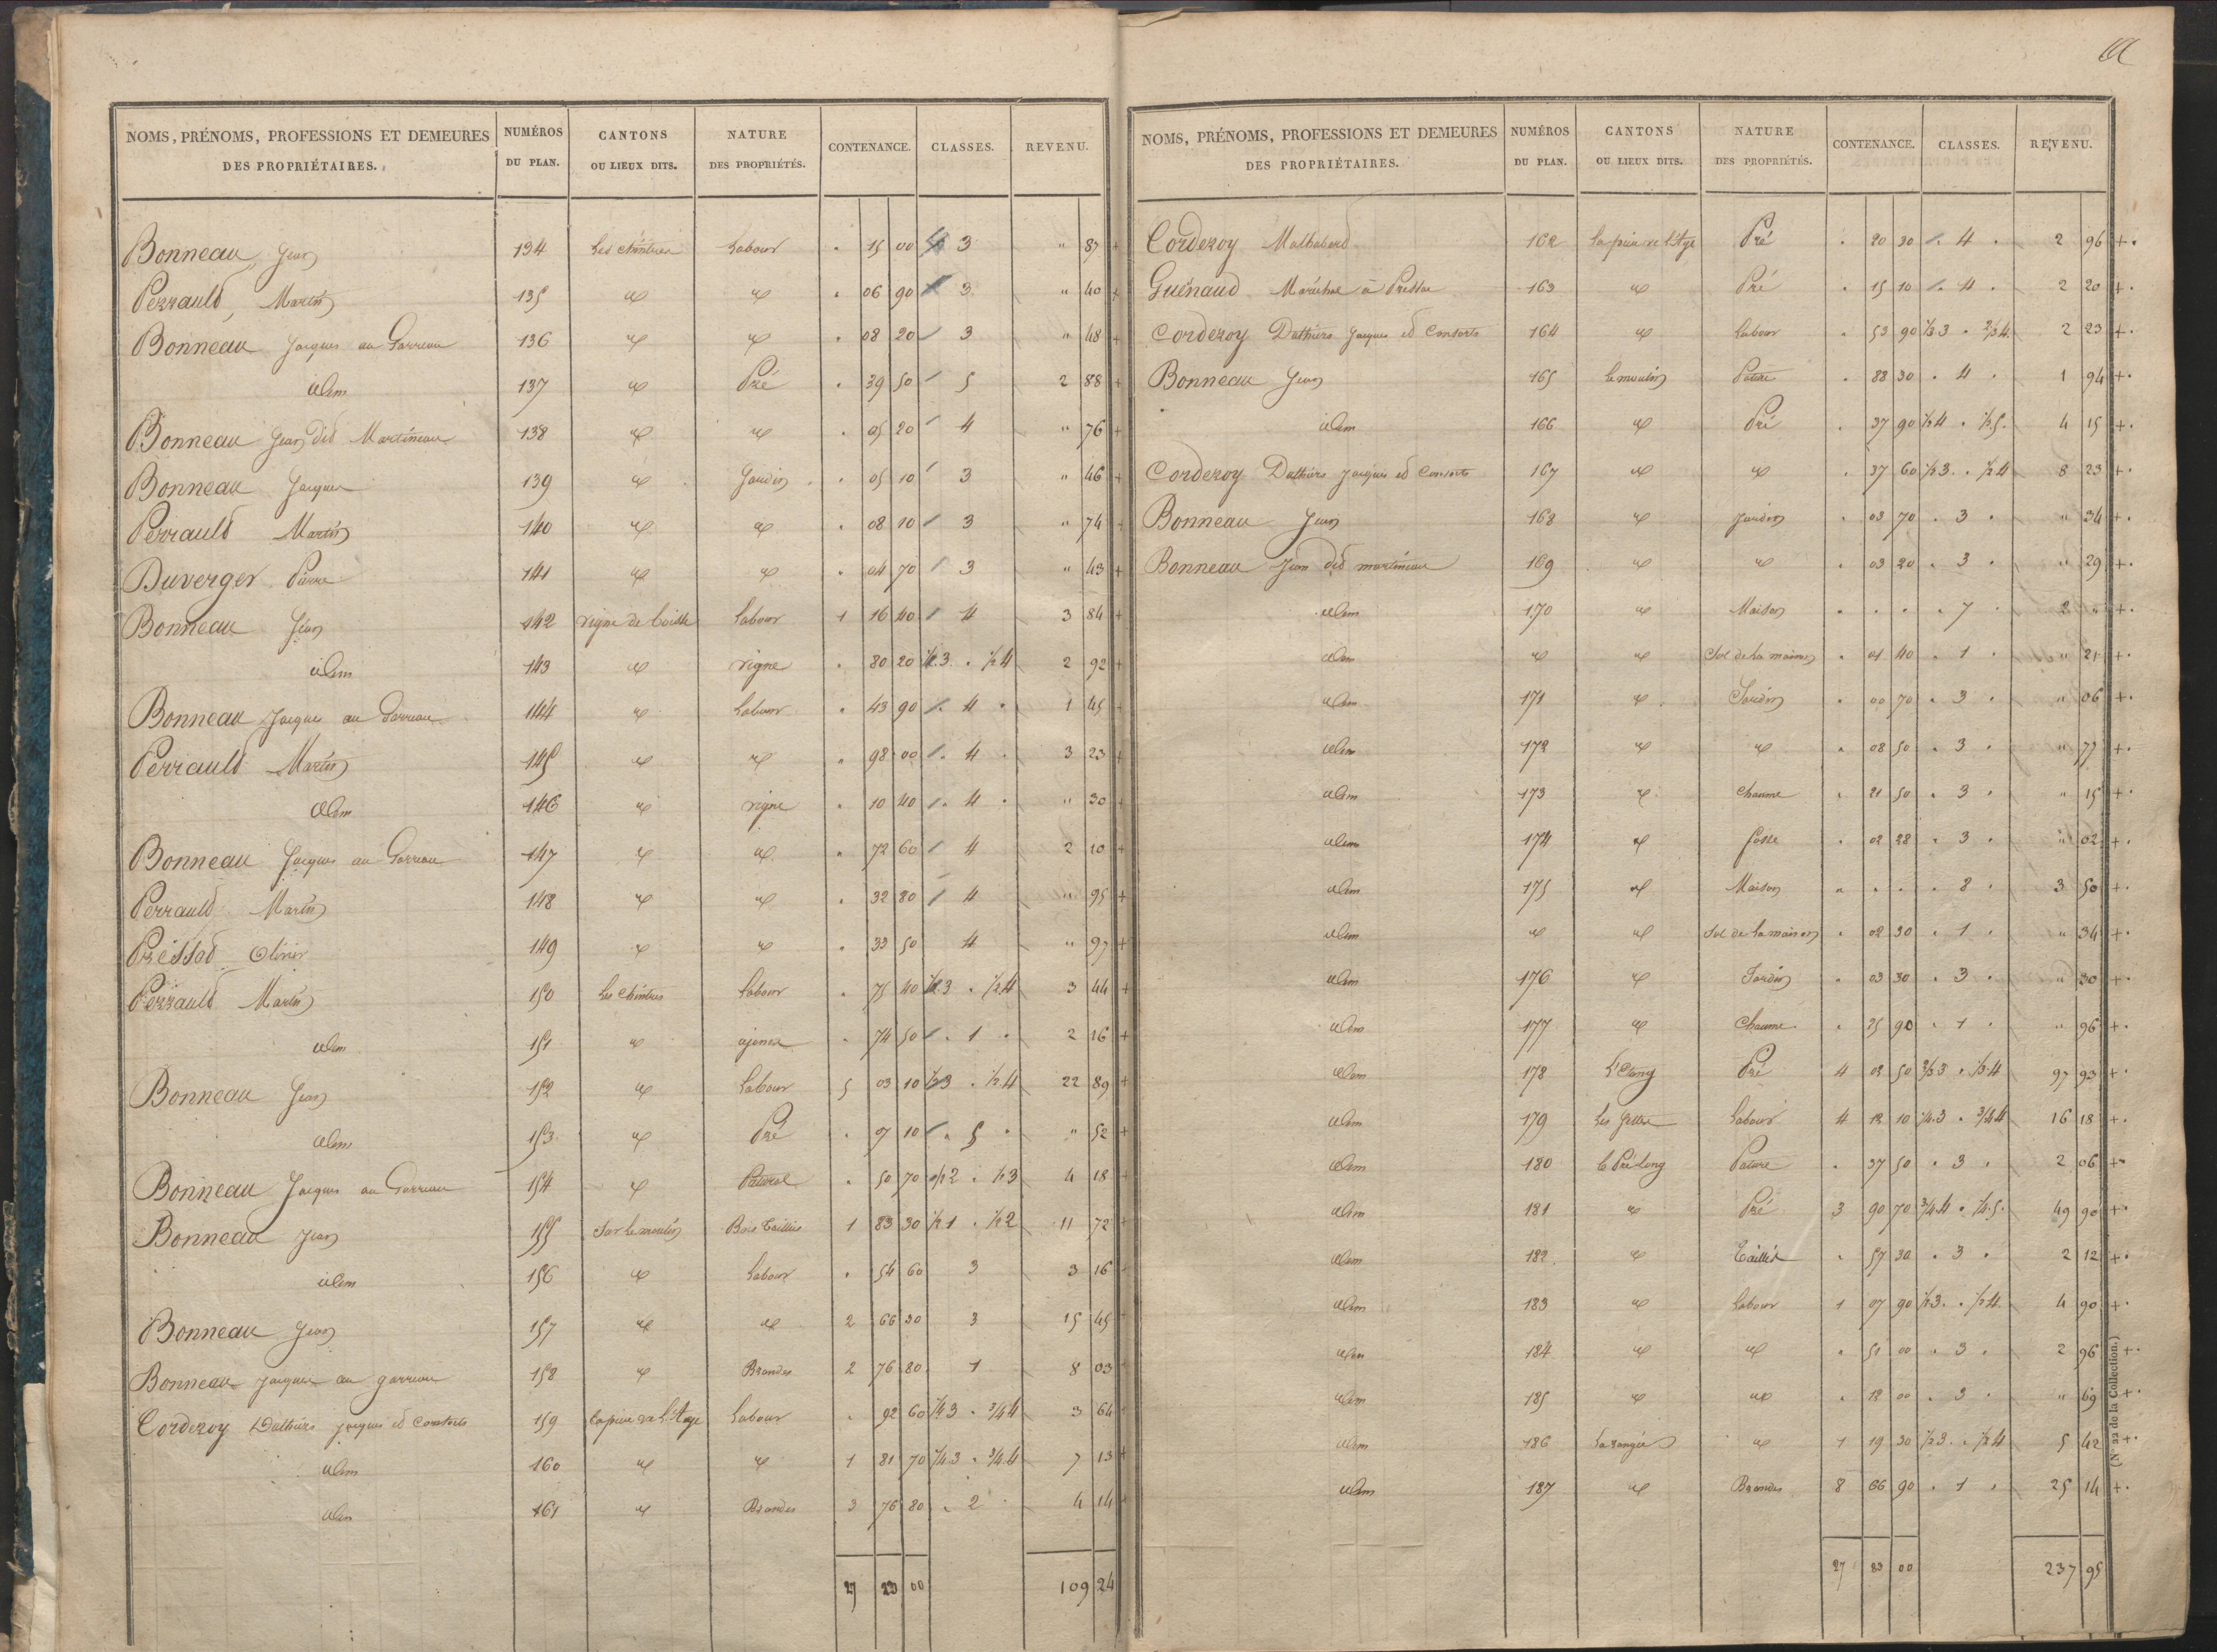 NOMS, PRÉNOMS, PROFESSIONS ET DEMEURES DES PROPRIÉTAIRES. NUMÉROS DU PLAN. CANTONS OU LIEUX DITS. NATURE DES PROPRIÉTÉS. CONTENANCE. CLASSES. REVENU.
Bonneau, Jean 134 Labour " 15 00 3 " 87 +
Perrault, Martin 135 id id " 06 90 3 " 40 +
Bonneau Jacques au Garreau 136 id id " 08 20 3 " 48 +
idem 137 id Pré " 39 50 5 2 88 +
Bonneau Jean dit Martineau 138 id id " 05 20 4 " 76 +
Bonneau Jacques 139 id Jardin " 05 10 3 " 46 +
Perrault Martin 140 id id " 08 10 3 " 74 +
Duverger Pierre 141 id id " 04 70 3 " 43 +
Bonneau Jean 142 Vigne de Labour 1 16 40 4 3 84 +
idem 143 id vigne " 80 20 1/2.3. 1/2 4 2 92 +
Bonneau Jacques au Garreau 144 id Labour " 43 90 4 1 45 +
Perrault Martin 145 id id " 98 00 4 3 23 +
idem 146 id vigne " 10 40 4 " 30 +
Bonneau Jacques au Garreau 147 id id " 72 60 4 2 10 +
Perrault Martin 148 id id " 32 80 4 " 95 +
Olivier 149 id id " 33 50 4 " 97 +
Perrault Martin 150 Labour " 75 40 1/2 3 . 1/2 4 3 44 +
idem 151 id ajoncs " 74 50 1 2 16 +
Bonneau Jean 152 id Labour 5 03 10 1/2 3 . 1/2 4 22 89 +
idem 153 id Pré " 07 10 5 " 52 +
Bonneau Jacques au Garreau 154 id " 50 70 1/2 2 . 1/2 3 4 18 +
Bonneau Jean 155 Sur le moulin Bois Taillis 1 83 30 1/2 1 . 1/2 2 11 72 +
idem 156 id Labour " 54 60 3 3 16
Bonneau Jean 157 id id 2 66 30 3 15 45
Bonneau Jacques au garreau 158 id Brandes 2 76 80 1 8 03
Corderoy Dathiers Jacques et Consorts 159 de l'Age Labour " 92 60 1/4 3 . 3/4 4 3 64
idem 160 id id 1 81 70 1/4.3 . 3/4.4 7 13 +
idem 161 id Brandes 3 76 80 2 4 14
109 24
NOMS, PRÉNOMS, PROFESSIONS ET DEMEURES DES PROPRIÉTAIRES. NUMÉROS DU PLAN. CANTONS OU LIEUX DITS. NATURE DES PROPRIÉTÉS. CONTENANCE. CLASSES. REVENU.
Corderoy 162 de l'Age Pré " 20 30 4 2 96 +
Guénaud Maréchal à 163 id Pré " 15 10 4 2 20 +
Corderoy Dathiers Jacques et Consorts 164 id Labour " 53 90 1/3 3 . 2/3 4. 2 23 +
Bonneau Jean 165 le moulin Pature " 88 30 4 1 94 +
idem 166 id Pré " 37 90 1/2 4 . 1/2 5. 4 15 +
Corderoy Dathiers Jacques et Consorts 167 id id " 37 60 1/2 3. . 1/2 4 8 23 +
Bonneau Jean 168 id Jardin " 03 70 3 " 34 +
Bonneau Jean dit martineau 169 id id " 03 20 3 " 29 +
idem 170 id Maison " " " 7 2 " +
idem id id Sol de la maison " 01 40 1 " 21 +
idem 171 id Jardin " 00 70 3 " 06 +
idem 172 id id " 08 50 3 " 77 +
idem 173 id Chaume " 21 50 3 " 15 +
idem 174 id fosse " 02 28 3 " 02 +
idem 175 id Maison " " " 8 3 50 +
idem id id Sol de la maison " 02 30 1 " 34 +
idem 176 id Jardin " 03 30 3 " 30 +
idem 177 id Chaume " 25 90 1 " 96 +
idem 178 L'Etang Pré 4 02 50 2/3 3 . 1/3.4 97 93 +
idem 179 Labour 4 12 10 1/4.3 . 3/4 4 16 18 +
idem 180 le Pré long Pature " 37 50 3 2 06 +
idem 181 id Pré 3 90 70 3/4.4 . 1/4.5. 49 90 +
idem 182 id Taillis " 57 30 3 2 12 +
idem 183 id Labour 1 07 90 1/2 3. . 1/2 4 4 90 +
idem 184 id id " 51 00 3 2 96 +
idem 185 id id " 12 00 3 " 69 +
idem 186 id 1 19 30 1/2 3. . 1/2 4 5 42 +
idem 187 id Brandes 8 66 90 1 25 14 +
27 83 00 237 95
(N° 22 de la Collection.)